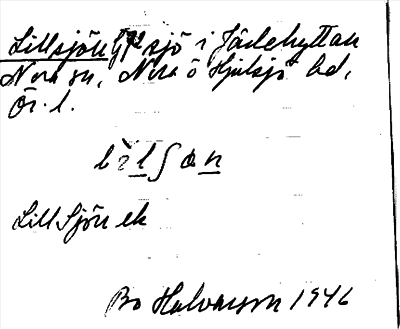 Lillsjön sjö i Järlehyttan
Nora sn, Nora o Hjulsjö bd,
Ör. l.
Lill Sjön ek
Bo Halvarson 1946